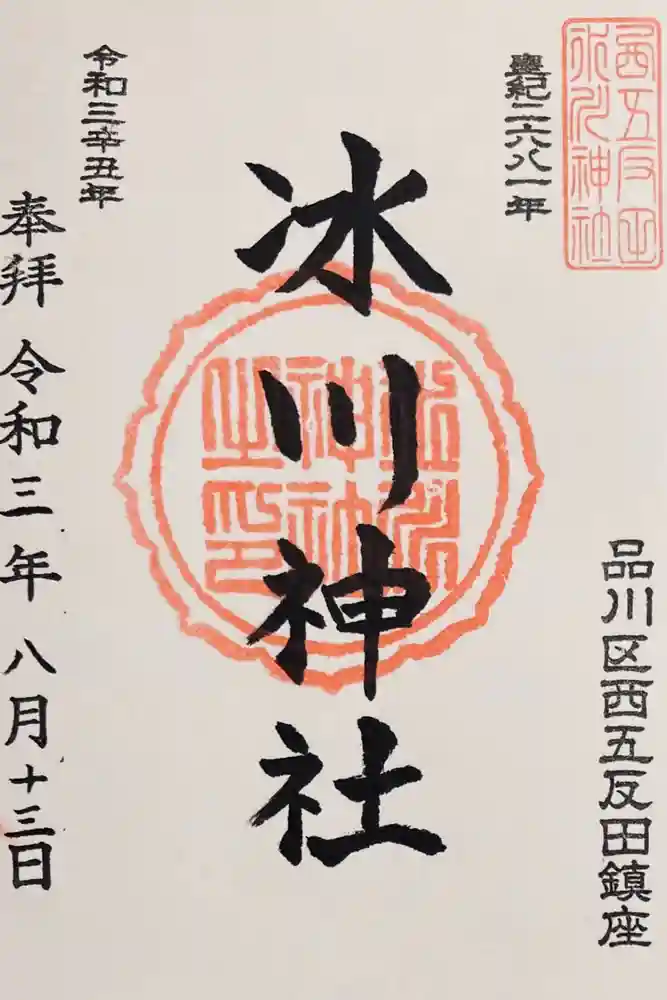 西五反田
氷川神社
皇紀二六八一年
品川区西五反田鎮座
氷川神社
令和三辛丑年
奉拝 令和三年 八月十三日